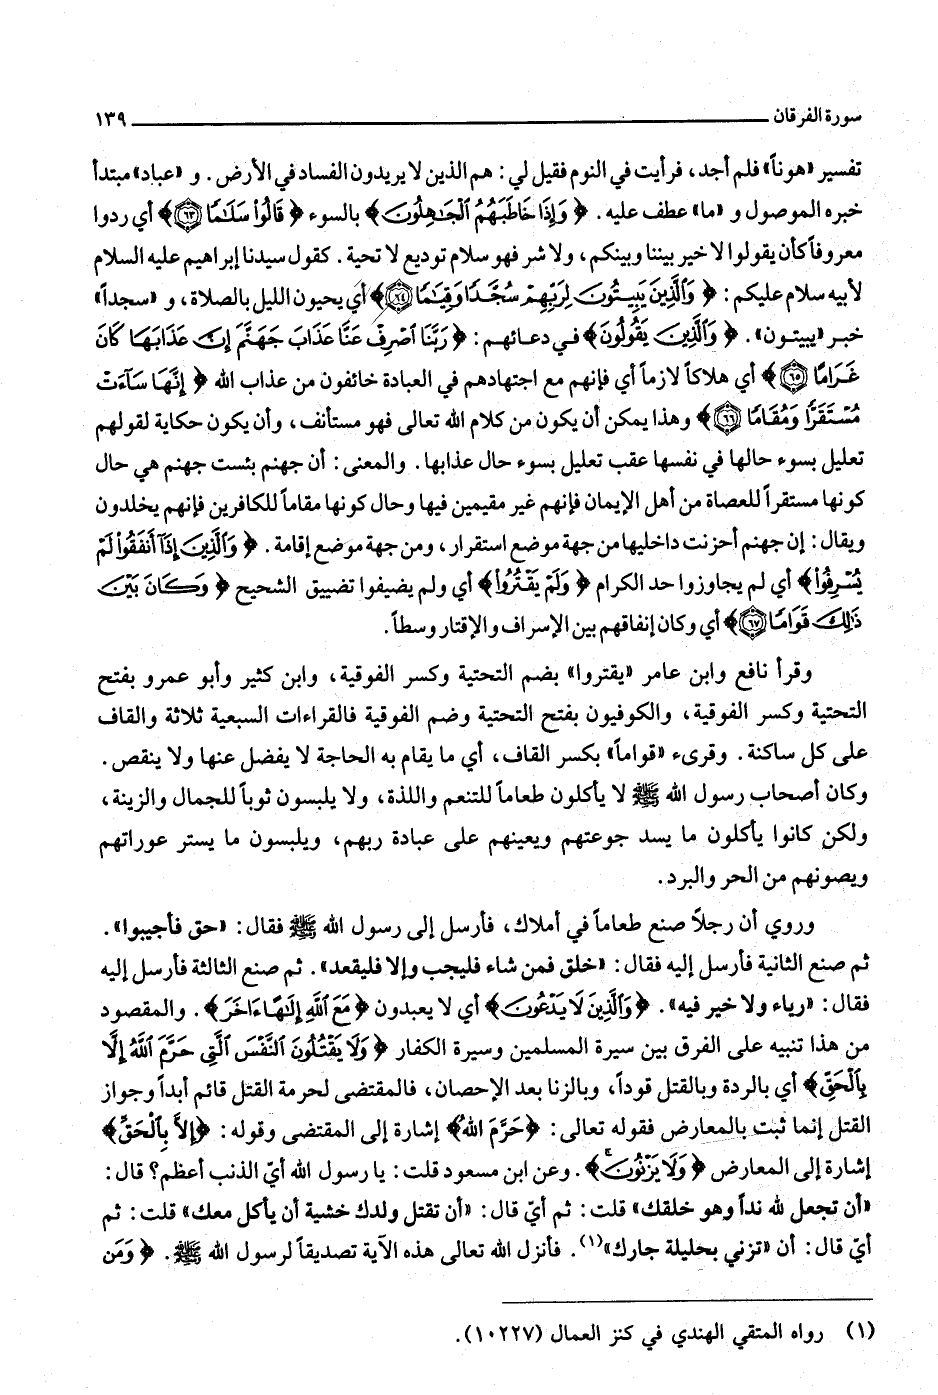 سورة الفرقان ١٣٩
تفسير «هوناً» فلم أجد، فرأيت في النوم فقيل لي: هم الذين لا يريدون الفساد في الأرض. و «عباد» مبتدأ
خبره الموصول و «ما» عطف عليه. ﴿ وَإِذَا خَاطَبَهُمُ ٱلْجَٰهِلُونَ ﴾ بالسوء ﴿ قَالُوا۟ سَلَٰمًا ۝٦٣ ﴾ أي ردوا
معروفاً كأن يقولوا لا خير بيننا وبينكم، ولا شر فهو سلام توديع لا تحية. كقول سيدنا إبراهيم عليه السلام
لأبيه سلام عليكم: ﴿ وَٱلَّذِينَ يَبِيتُونَ لِرَبِّهِمْ سُجَّدًا وَقِيَٰمًا ۝٦٤ ﴾ أي يحيون الليل بالصلاة، و «سجداً»
خبر «يبيتون». ﴿ وَٱلَّذِينَ يَقُولُونَ ﴾ في دعائهم: ﴿ رَبَّنَا ٱصْرِفْ عَنَّا عَذَابَ جَهَنَّمَ إِنَّ عَذَابَهَا كَانَ
غَرَامًا ۝٦٥ ﴾ أي هلاكاً لازماً أي فإنهم مع اجتهادهم في العبادة خائفون من عذاب الله ﴿ إِنَّهَا سَآءَتْ
مُسْتَقَرًّا وَمُقَامًا ۝٦٦ ﴾ وهذا يمكن أن يكون من كلام الله تعالى فهو مستأنف، وأن يكون حكاية لقولهم
تعليل بسوء حالها في نفسها عقب تعليل بسوء حال عذابها. والمعنى: أن جهنم بئست جهنم هي حال
كونها مستقراً للعصاة من أهل الإيمان فإنهم غير مقيمين فيها وحال كونها مقاماً للكافرين فإنهم يخلدون
ويقال: إن جهنم أحزنت داخليها من جهة موضع استقرار، ومن جهة موضع إقامة. ﴿ وَٱلَّذِينَ إِذَآ أَنفَقُوا۟ لَمْ
يُسْرِفُوا۟ ﴾ أي لم يجاوزوا حد الكرام ﴿ وَلَمْ يَقْتُرُوا۟ ﴾ أي ولم يضيفوا تضييق الشحيح ﴿ وَكَانَ بَيْنَ
ذَٰلِكَ قَوَامًا ۝٦٧ ﴾ أي وكان إنفاقهم بين الإسراف والإقتار وسطاً.
وقرأ نافع وابن عامر «يقتروا» بضم التحتية وكسر الفوقية، وابن كثير وأبو عمرو بفتح
التحتية وكسر الفوقية، والكوفيون بفتح التحتية وضم الفوقية فالقراءات السبعية ثلاثة والقاف
على كل ساكنة. وقرىء «قواماً» بكسر القاف، أي ما يقام به الحاجة لا يفضل عنها ولا ينقص.
وكان أصحاب رسول الله ﷺ لا يأكلون طعاماً للتنعم واللذة، ولا يلبسون ثوباً للجمال والزينة،
ولكن كانوا يأكلون ما يسد جوعتهم ويعينهم على عبادة ربهم، ويلبسون ما يستر عوراتهم
ويصونهم من الحر والبرد.
وروي أن رجلاً صنع طعاماً في أملاك، فأرسل إلى رسول الله ﷺ فقال: «حق فأجيبوا».
ثم صنع الثانية فأرسل إليه فقال: «خلق فمن شاء فليجب وإلا فليقعد». ثم صنع الثالثة فأرسل إليه
فقال: «رياء ولا خير فيه». ﴿ وَٱلَّذِينَ لَا يَدْعُونَ ﴾ أي لا يعبدون ﴿ مَعَ ٱللَّهِ إِلَٰهًا ءَاخَرَ ﴾. والمقصود
من هذا تنبيه على الفرق بين سيرة المسلمين وسيرة الكفار ﴿ وَلَا يَقْتُلُونَ ٱلنَّفْسَ ٱلَّتِى حَرَّمَ ٱللَّهُ إِلَّا
بِٱلْحَقِّ ﴾ أي بالردة وبالقتل قوداً، وبالزنا بعد الإحصان، فالمقتضى لحرمة القتل قائم أبداً وجواز
القتل إنما ثبت بالمعارض فقوله تعالى: ﴿حَرَّمَ اللهُ﴾ إشارة إلى المقتضى وقوله: ﴿إِلاَّ بِٱلْحَقِّ﴾
إشارة إلى المعارض ﴿ وَلَا يَزْنُونَ ﴾. وعن ابن مسعود قلت: يا رسول الله أيّ الذنب أعظم؟ قال:
«أن تجعل لله نداً وهو خلقك» قلت: ثم أيّ قال: «أن تقتل ولدك خشية أن يأكل معك» قلت: ثم
أيّ قال: أن «تزني بحليلة جارك»(١). فأنزل الله تعالى هذه الآية تصديقاً لرسول الله ﷺ. ﴿ وَمَن
(١) رواه المتقي الهندي في كنز العمال (١٠٢٢٧).